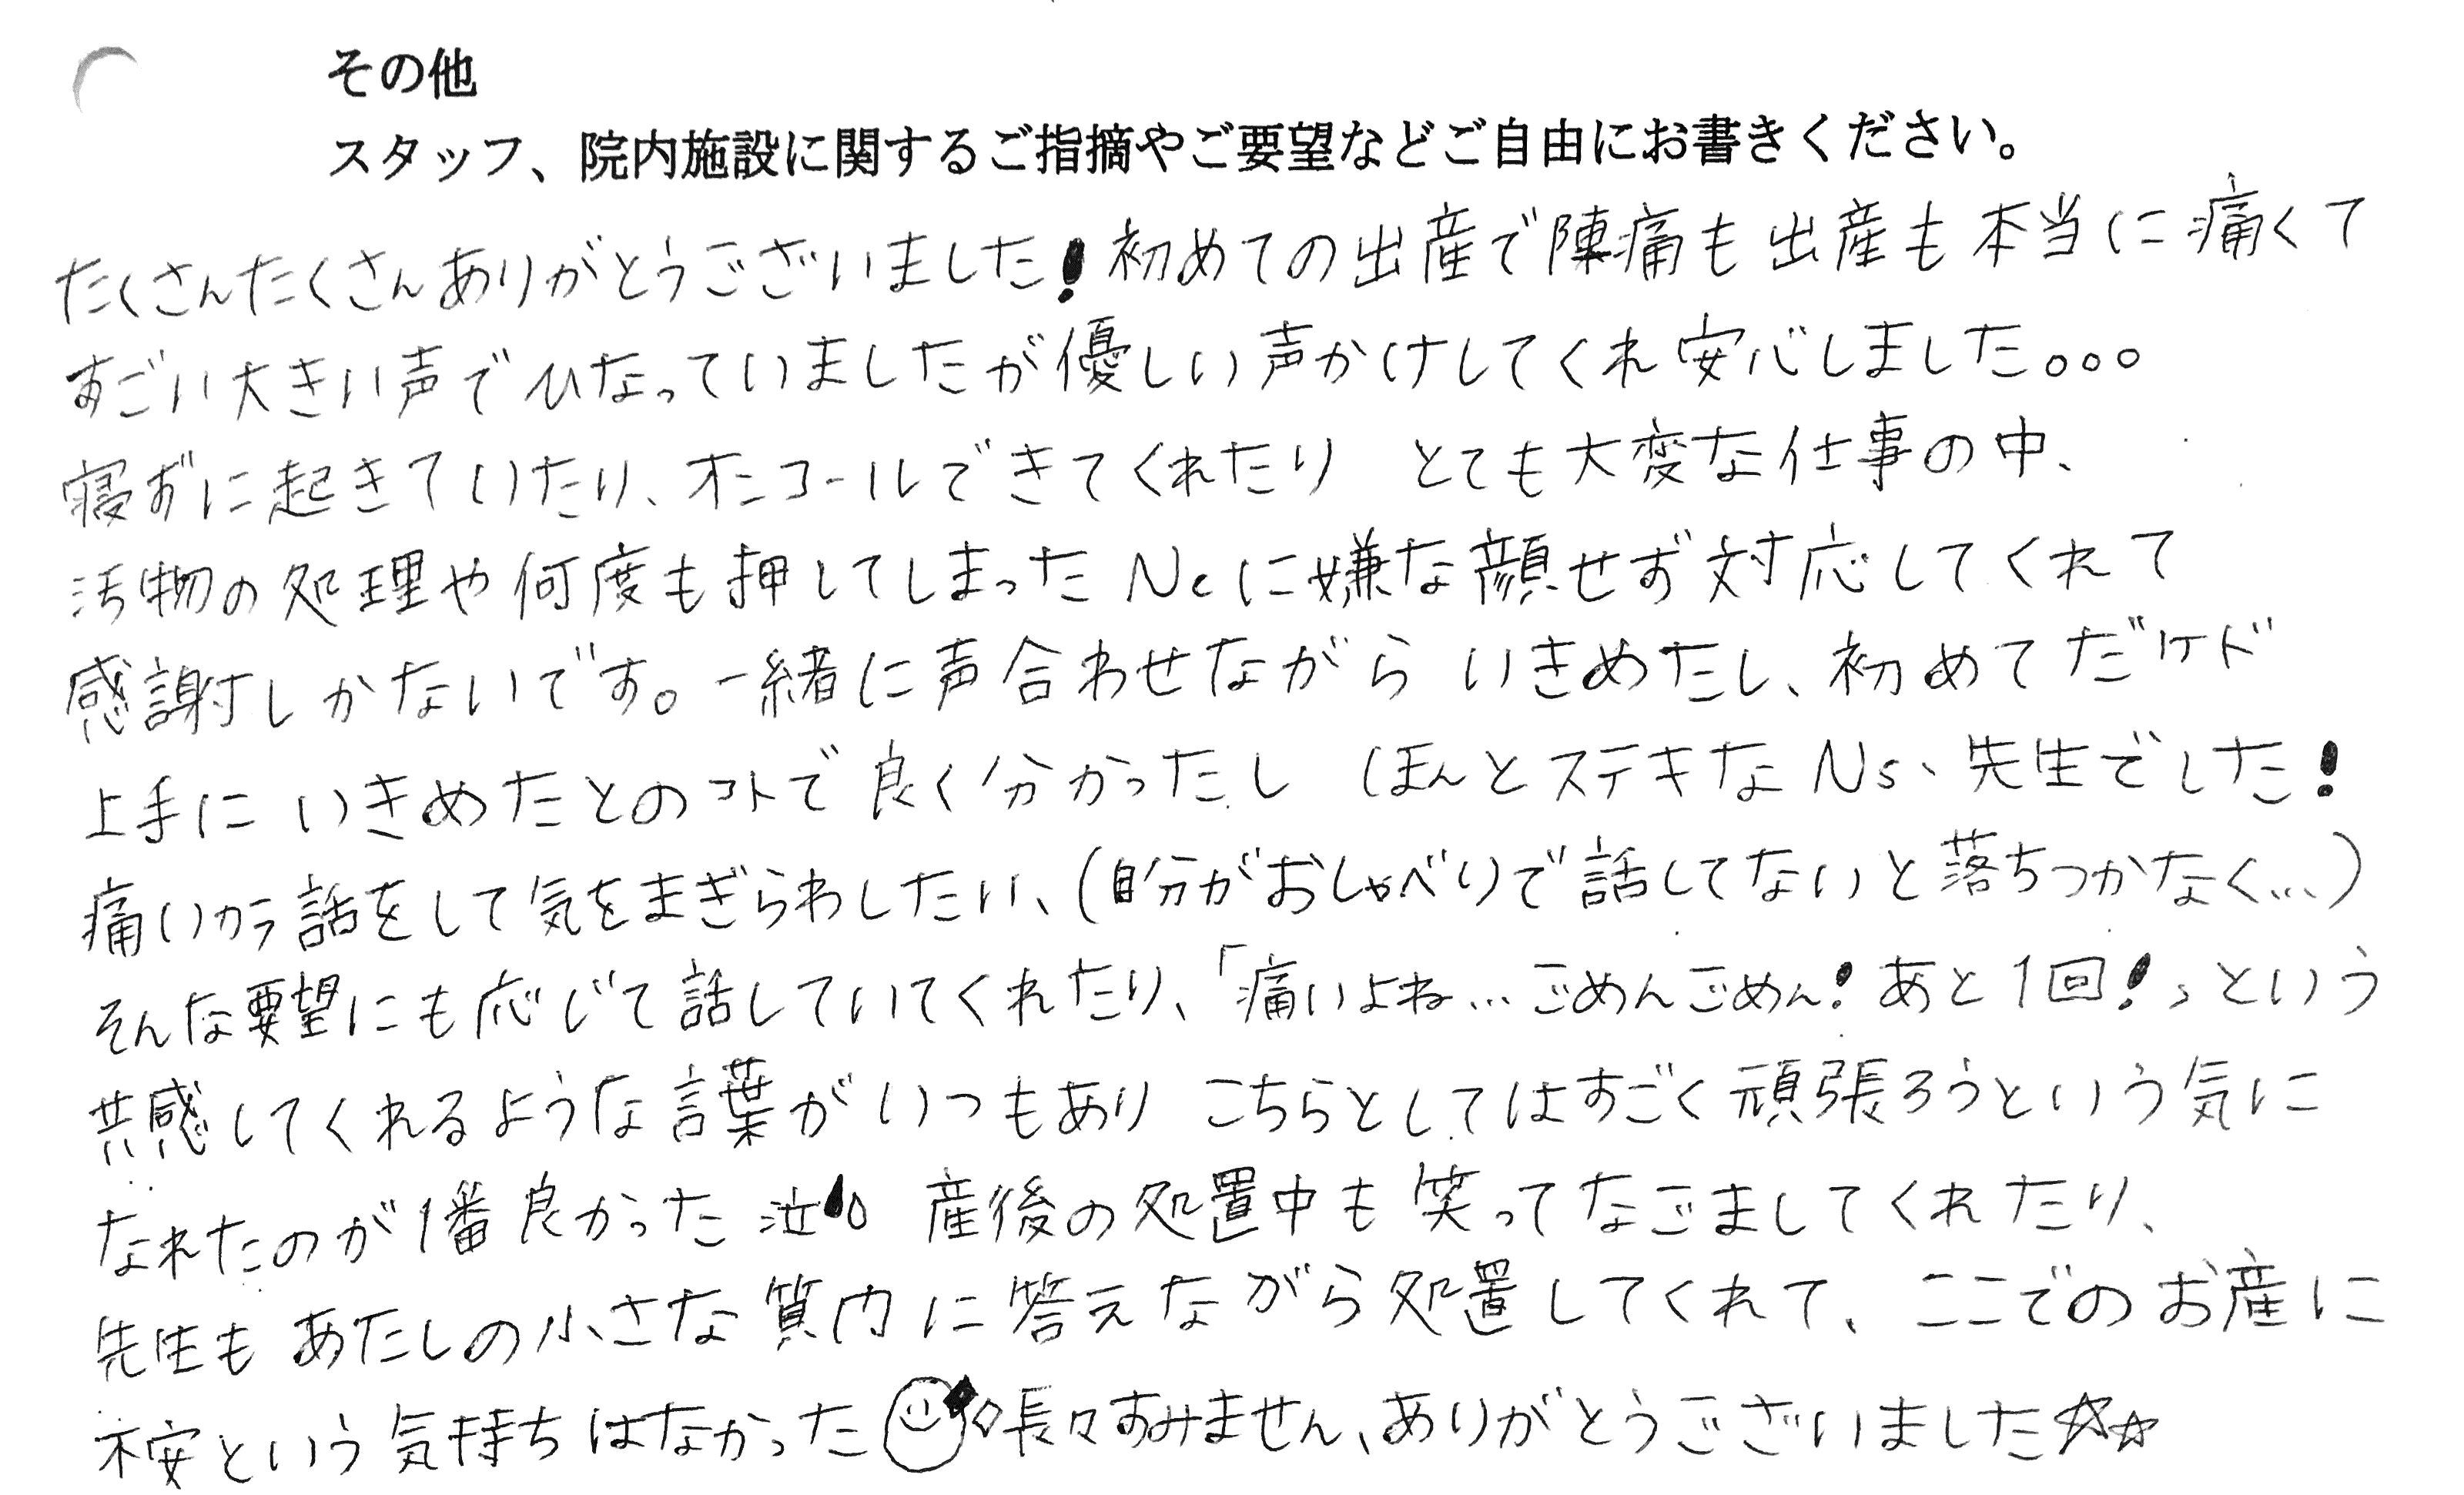 その他
スタッフ、院内施設に関するご指摘やご要望などご自由にお書きください。
たくさんたくさんありがとうございました!初めての出産で陣痛も出産も本当に痛くて
すごい大きい声でひなっていましたが優しい声かけしてくれ安心しました。。。
寝ずに起きていたり、オンコールできてくれたり とても大変な仕事の中、
汚物の処理や何度も押してしまったNcに嫌な顔せず対応してくれて
感謝しかないです。一緒に声合わせながら いきめたし、初めてだケド
上手に いきめたとのコトで良く分かったし ほんとステキなNs、先生でした!
痛いカラ話をして気をまぎらわしたい、(自分がおしゃべりで話してないと落ちつかなく…)
そんな要望にも応じて話していてくれたり、「痛いよね…ごめんごめん!あと1回!」という
共感してくれるような言葉がいつもあり こちらとしてはすごく頑張ろうという気に
なれたのが1番良かった 産後の処置中も笑ってなごましてくれたり、
先生もあたしの小さな質問に答えながら処置してくれて、ここでのお産に
不安という気持ちはなかった 長々すみません、ありがとうございました☆☆